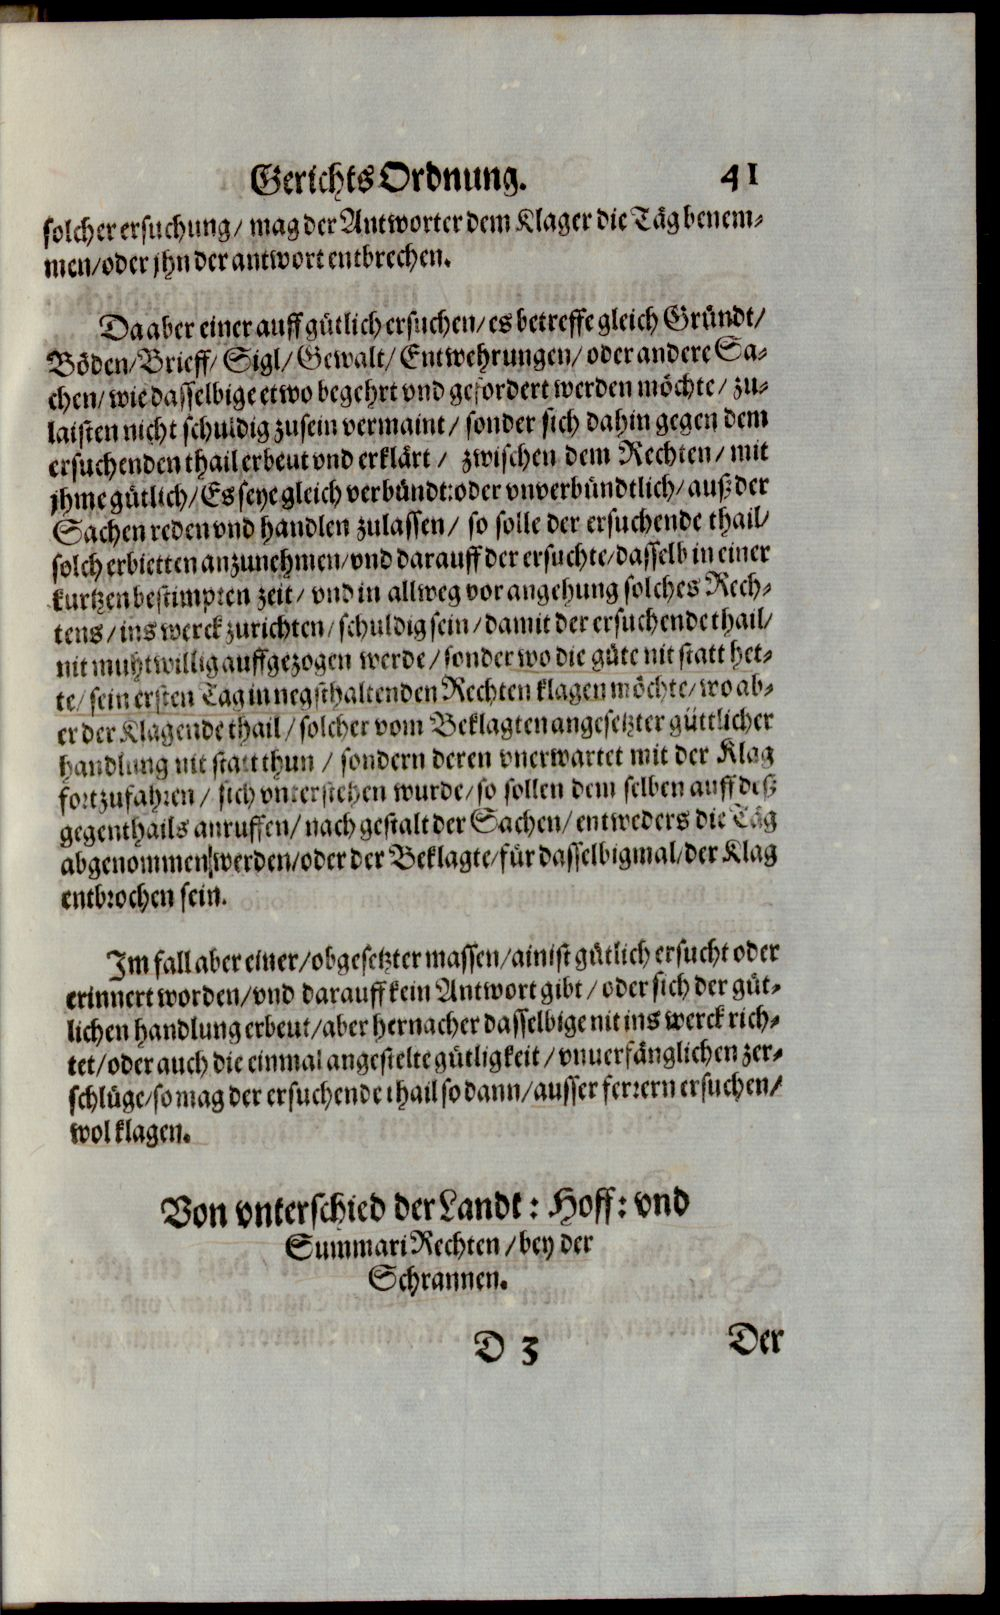 Gerichts Ordnung. 41
solcher ersuchung/ mag der Antworter dem Klager die Täg benem-
men/oder jhn der antwort entbrechen.
Da aber einer auff gütlich ersuchen/ es betreffe gleich Gründt/
Böden/Brieff/ Sigl/ Gewalt/ Entwehrungen/ oder andere Sa-
chen/ wie dasselbige etwo begehrt vnd gefordert werden möchte/ zu-
laisten nicht schuldig zusein vermaint/ sonder sich dahin gegen dem
ersuchenden thail erbeut vnd erklärt/ zwischen dem Rechten/ mit
jhme gütlich/ Es seye gleich verbündt: oder vnverbündtlich/ auß der
Sachen reden vnd handlen zulassen/ so solle der ersuchende thail/
solch erbietten anzunehmen/ vnd darauff der ersuchte/ dasselb in einer
kurtzen bestimpten zeit/ vnd in allweg vor angehung solches Rech-
tens/ ins werck zurichten/ schuldig sein/ damit der ersuchende thail/
nit muhtwillig auffgezogen werde/ sonder wo die güte nit statt het-
te/ sein ersten Tag in negsthaltenden Rechten klagen möchte/ wo ab-
er der Klagende thail/ solcher vom Beklagten angesetzter güttlicher
handlung nit statt thun/ sondern deren vnerwartet mit der Klag
fortzufahren/ sich vnterstehen wurde/ so sollen dem selben auff deß
gegenthails anruffen/ nach gestalt der Sachen/ entweders die Täg
abgenommen werden/ oder der Beklagte/ für dasselbigmal/ der Klag
entbrochen sein.
Im fall aber einer/ obgesetzter massen/ ainist gütlich ersucht oder
erinnert worden/ vnd darauff kein Antwort gibt/ oder sich der güt-
lichen handlung erbeut/ aber hernacher dasselbige nit ins werck rich-
tet/ oder auch die einmal angestelte gütligkeit/ vnuerfänglichen zer-
schlüge/ so mag der ersuchende thail so dann/ ausser ferrern ersuchen/
wol klagen.
Von vnterschied der Landt: Hoff: vnd
Summari Rechten/ bey der
Schrannen.
D 3 Der